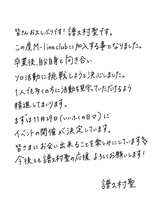 皆さんお久しぶりです！譜久村聖です。
この度M-line clubに加入する事になりました。
卒業後、自分自身と向き合い
ソロ活動に挑戦しようと決心しました。
1人でも多くの方に活動を見守っていただけるよう
精進してまいります。
まずは11月29日(いいふくの日)に
イベントの開催が決定しています。
皆さまにお会い出来ることを楽しみにしています
今後とも譜久村聖の応援よろしくお願いします！
譜久村聖